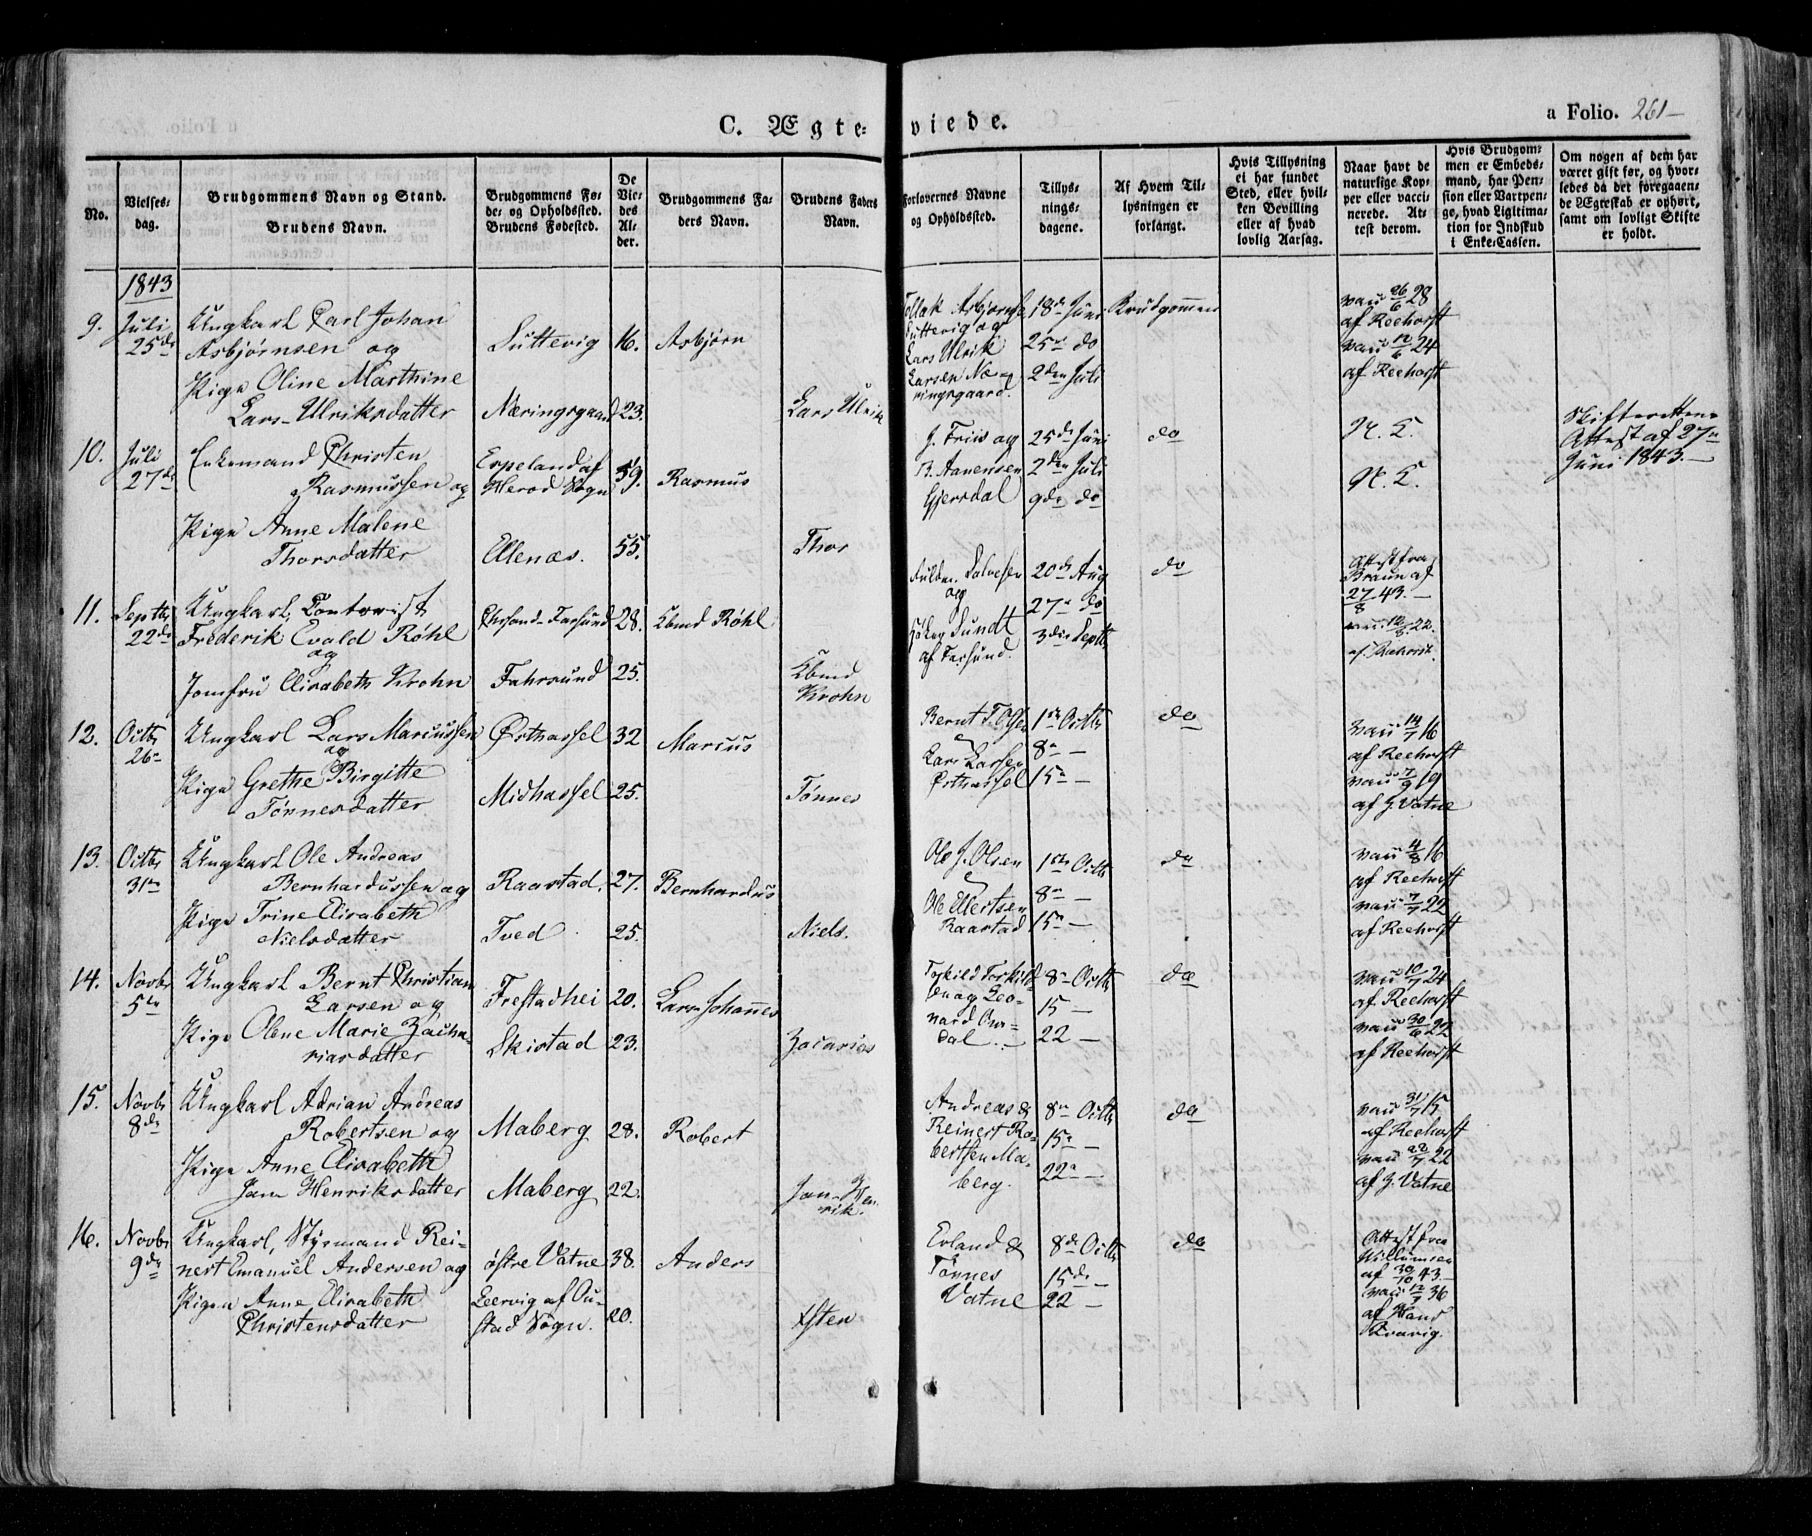 C. Ægteviede.
a Folio. 261
No.
Vielsesdag.
Brudgommens Navn og Stand.
Brudens Navn.
Brudgommens Føde- og Opholdssted.
Brudens Fødested.
De Viedes Alder.
Brudgommens Faders Navn.
Brudens Faders Navn.
Forlovernes Navne og Opholdssted.
Tillysningsdagene.
Af Hvem Tillysningen er forlangt.
Hvis Tillysning ei har fundet Sted, eller hvilken Bevilling eller af hvad lovlig Aarsag.
Naar havt de naturlige Kopper eller vaccinerede. Attest derom.
Hvis Brudgommen er Embedsmand, har Pension eller Vartpenge, hvad Ligitimation for Indskud i Enke-Cassen.
Om nogen af dem har været gift før, og hvorledes da det foregaaende Ægteskab er ophørt, samt om lovligt Skifte er holdt.
1843
9. Juli 25de Ungkarl Carl Johan Asbjørnsen og Luttevig 16. Asbjørn
Pige Oline Marthine Lars-Ulriksdatter Næringsgaard 23. Lars Ulrik
Tollak Asbjørnsen Luttevig og Lars Ulrik Larsen Næringsgaard.
18de Juni 25de do 2den Juli Brudgommen
vac 26/6 28 af Reehorst
vac 12/6 24 af Reehorst
10. Juli 27de Enkemand Christen Rasmussen og Espeland af Herod Sogn 59. Rasmus
Pige Anne Malene Thorsdatter Ellenæs. 55. Thor
J. Friis og B. Aanensen Gjersdal
25de Juni 2den Juli 9de do do
N. C.
N. C.
Skifterettens Attest af 27de Juni 1843.
11. Septbr 22de Ungkarl, Contorist Frederik Evald Røhl og Chrsand-Farsund 28. Kbmd Røhl
Jomfru Elisabeth Krohn Fahrsund 25. Kbmd Krohn
Salvesen og Lundt af Farsund.
20de Aug 27de do 3die Septbr do
Attest fra Braun af 27/8 43.
vac 12/8 22. af Reehorst.
12. Octbr 26de Ungkarl Lars Marcussen og Østhassel 32 Marcus
Pige Grethe Birgitte Tønnesdatter Midhassel 25. Tønnes
Bernt T. Olsen & Lars Larsen Østhassel
1ste Octbr 8de — 15de — do
vac 14/7 16 af Reehorst
vac 7/9 19 af Z. Vatne
13. Octbr 31te Ungkarl Ole Andreas Bernhardussen og Raastad. 27. Bernhardus
Pige Trine Elisabeth Nielsdatter Tved 25. Niels.
Ole J. Olsen & Ole Ellertsen Raastad
1ste Octbr 8de — 15de — do
vac 4/8 16 af Reehorst
vac 7/7 22 af Reehorst
14. Novbr 5te Ungkarl Bernt Christian Larsen og Frestadhei 20. Lars Johannes
Pige Olene Marie Zachariasdatter Skistad 23. Zacarias
Torkild Torkildsen og Leonard Omdal.
8de Octbr 15 — 22 — do
vac 10/7 24 af Reehorst
vac 30/6 22 af Reehorst
15. Novbr 8de Ungkarl Adrian Andreas Robertsen og Maberg 28. Robert
Pige Anne Elisabeth Jan Henriksdatter Maberg 22. Jan Henrik.
Andreas & Reinert Robertsen Maberg.
8de Octbr 15de — 22de — do
vac 31/7 15 af Reehorst
vac 22/7 22 af Z. Vatne
16. Novbr 9de Ungkarl, Styrmand Reinert Emanuel Andersen og østre Vatne 38. Anders
Pigen Anne Elisabeth Christensdatter Leervig af Oustad Sogn. 20.
Evland & Tønnes Vatne
8de Octbr 15de — 22 — do
Attest fra Willumsen af 30/10 43.
vac 12/7 36 af Hans Kvavig.